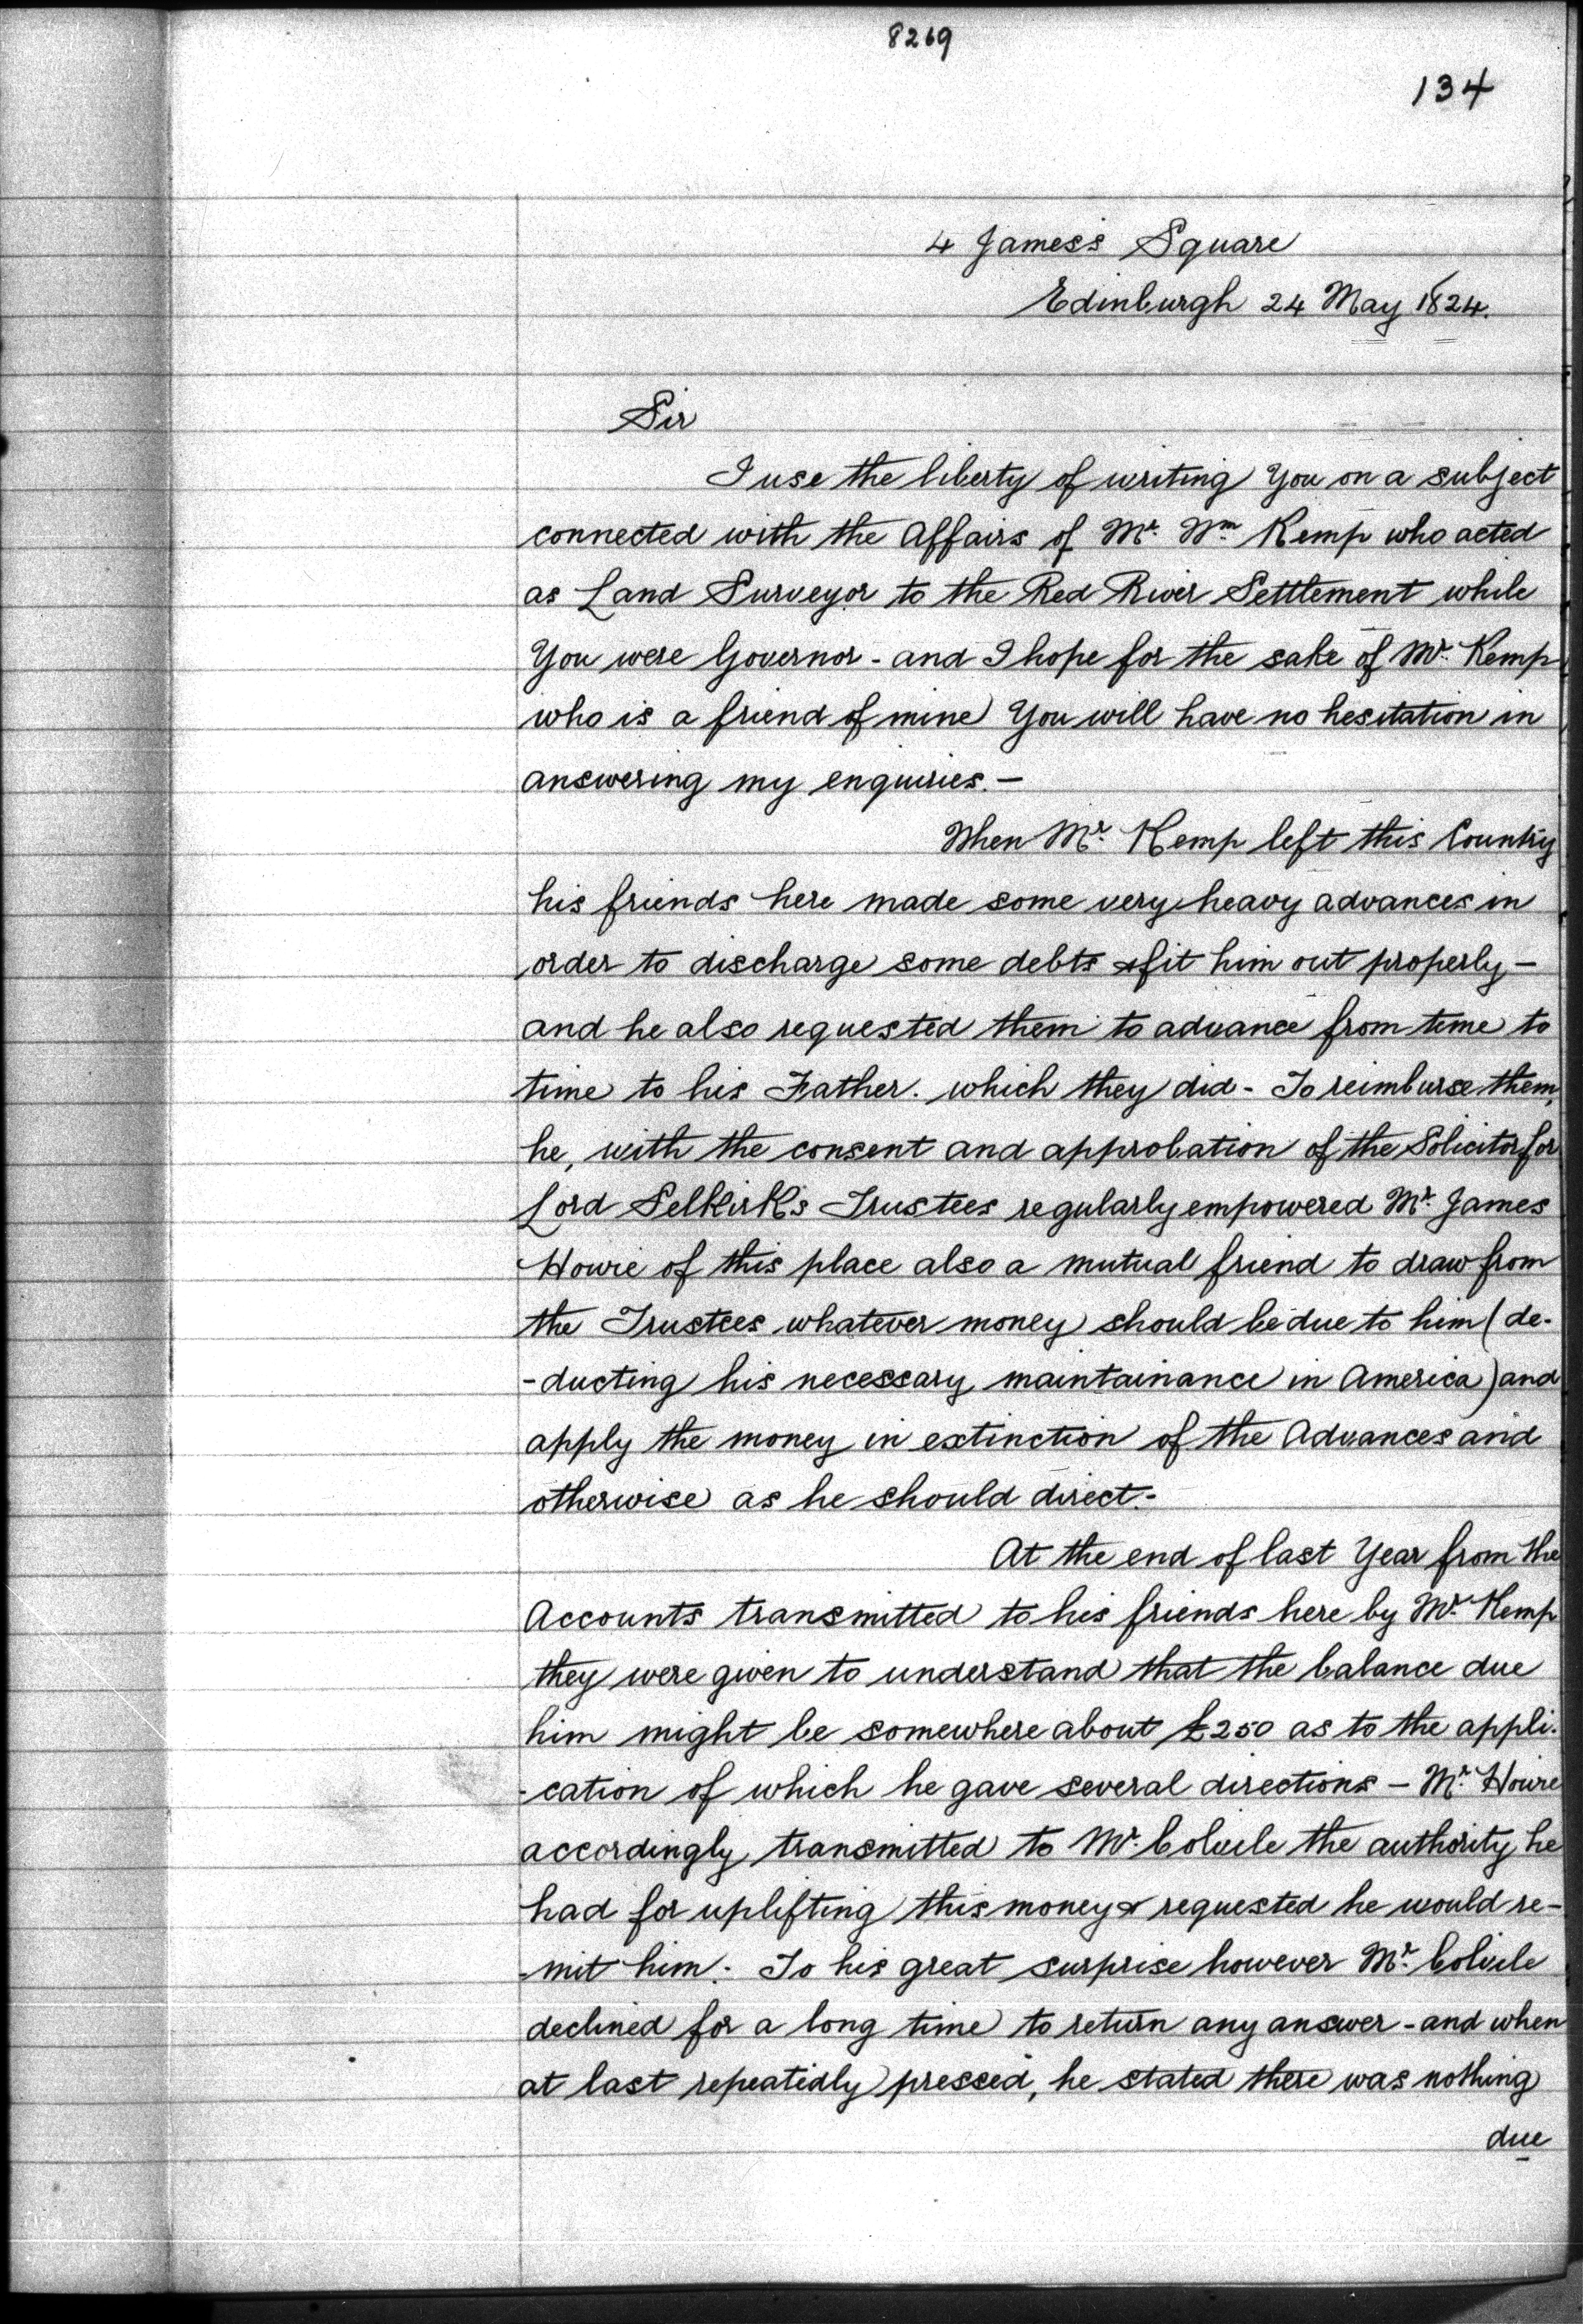 8269
134
4 James's Square
Edinburgh 24 May 1824.
Sir
I use the liberty of writing You on a subject
connected with the Affairs of Mr. Wm. Kemp who acted
as Land Surveyor to the Red River Settlement while
You were Governor - and I hope for the sake of Mr. Kemp
who is a friend of mine You will have no hesitation in
answering my enquiries. -
When Mr. Kemp left this Country
his friends here made some very heavy advances in
order to discharge some debts & fit him out properly -
and he also requested them to advance from time to
time to his Father. which they did - To reimburse them,
he, with the consent and approbation of the Solicitor for
Lord Selkirk's Trustees regularly empowered Mr. James
Howie of this place also a mutual friend to draw from
the Trustees whatever money should be due to him (de-
-ducting his necessary maintainance in America) and
apply the money in extinction of the Advances and
otherwise as he should direct. -
At the end of last Year from the
Accounts transmitted to his friends here by Mr. Kemp
they were given to understand that the balance due
him might be somewhere about £250 as to the appli-
-cation of which he gave several directions - Mr. Howie
accordingly transmitted to Mr. Colvile the authority he
had for uplifting this money & requested he would re-
-mit him. To his great surprise however Mr. Colvile
declined for a long time to return any answer - and when
at last repeatedly pressed, he stated there was nothing
due